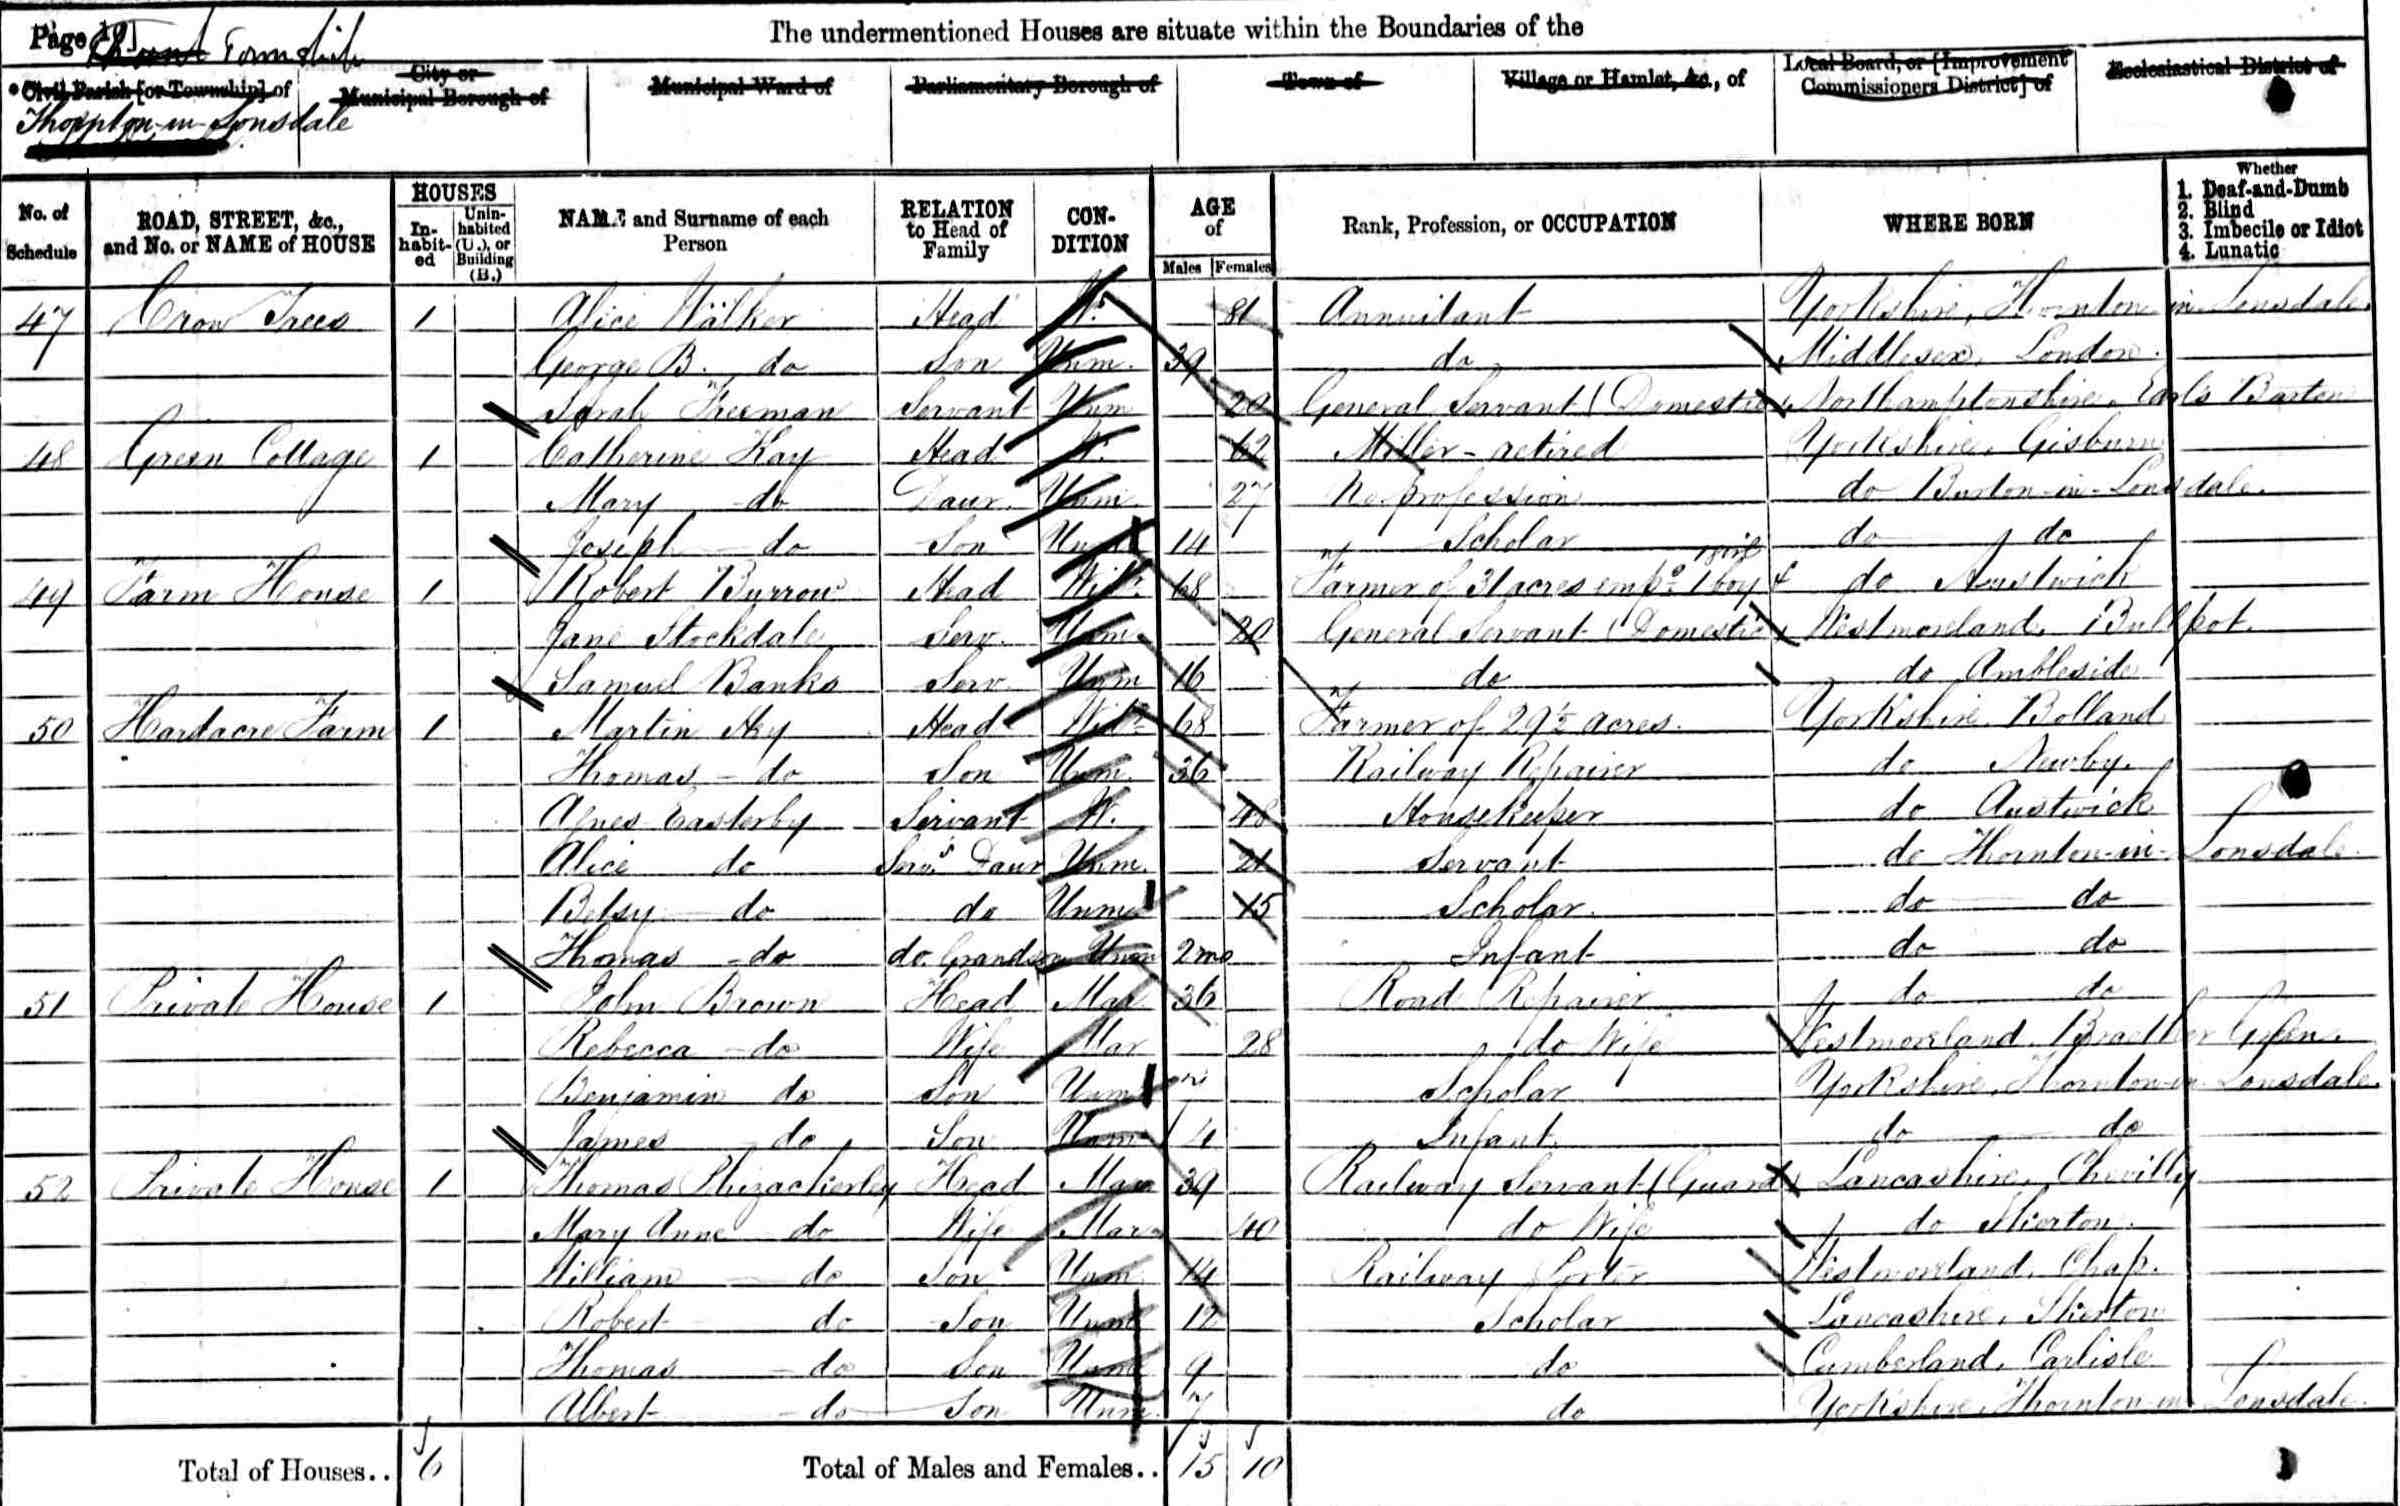 Page 19]
The undermentioned Houses are situate within the Boundaries of the
Township
Civil Parish [or Township] of
City or Municipal Borough of
Municipal Ward of
Parliamentary Borough of
Town of
Village or Hamlet, &c., of
Local Board, or [Improvement Commissioners District] of
Ecclesiastical District of
Thornton-in-Lonsdale
No. of Schedule
ROAD, STREET, &c., and No. or NAME of HOUSE
HOUSES
In-habit-ed
Unin-habited (U.), or Building (B.)
NAME and Surname of each Person
RELATION to Head of Family
CON-DITION
AGE of
Males Females
Rank, Profession, or OCCUPATION
WHERE BORN
Whether
1. Deaf-and-Dumb
2. Blind
3. Imbecile or Idiot
4. Lunatic
47 Crow Trees 1 Alice Walker Head W. 81 Annuitant Yorkshire, Thornton in Lonsdale.
George B. do Son Unm. 39 do Middlesex, London.
Sarah Freeman Servant Unm 20 General Servant (Domestic) Northamptonshire, Earls Barton
48 Green Cottage 1 Catherine Kay Head W. 62 Miller - retired Yorkshire, Gisburn
Mary do Daur. Unm. 27 No profession do Burton-in-Lonsdale.
Joseph do Son Unm 14 Scholar do do
49 Farm House 1 Robert Burrow Head Widr. 68 Farmer of 31 acres empg. 1 boy & 1 girl do Austwick
Jane Stockdale Serv. Unm. 20 General Servant (Domestic) Westmorland, Bullpot.
Samuel Banks Serv. Unm 16 do do Ambleside
50 Hardacre Farm 1 Martin Hey Head Widr. 68 Farmer of 29½ acres. Yorkshire. Bolland
Thomas - do Son Unm. 36 Railway Repairer do Newby.
Agnes Easterby Servant W. 48 Housekeeper do Austwick
Alice do Serv.s Daur Unm. 21 Servant do Thornton-in-Lonsdale.
Betsy do do Unm 15 Scholar. do do
Thomas - do do. Grandson Unm 2mo Infant do do
51 Private House 1 John Brown Head Mar 36 Road Repairer do do
Rebecca - do Wife Mar 28 do Wife Westmorland.
Benjamin do Son Unm 7 Scholar Yorkshire, Thornton-in-Lonsdale.
James do Son Unm 4 Infant. do do
52 Private House 1 Thomas Phizackerley Head Mar 39 Railway Servant (Guard) Lancashire,
Mary Anne do Wife Mar 40 do Wife do Skerton.
William do Son Unm. 14 Railway Porter Westmorland, Shap.
Robert do Son Unm 12 Scholar Lancashire, Skerton
Thomas - do Son Unm 9 do Cumberland, Carlisle
Albert - do Son Unm. 7 do Yorkshire, Thornton-in-Lonsdale.
Total of Houses.. 6
Total of Males and Females.. 15 10